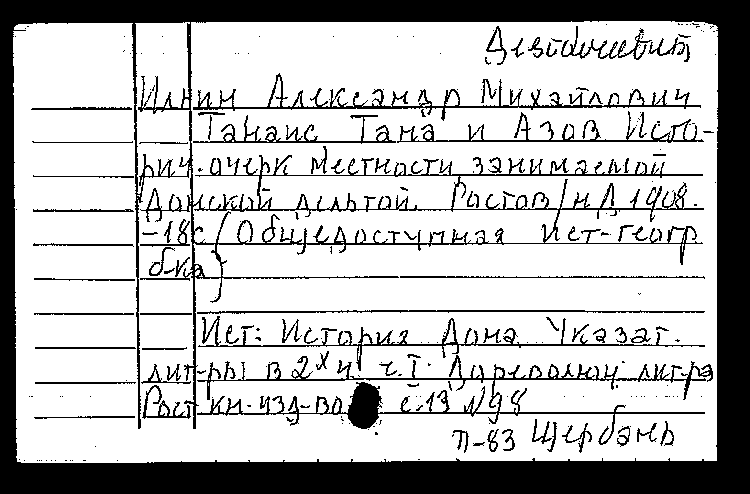 Илнин Александр Михайлович
Танаис Тана и Азов Исто-
рич. очерк местности, занимаемой
Донской дельтой. Ростов/нД 1908.
-18с (Общедоступная ист-геогр
б-ка)
Ист: История Дона Указат.
лит-ры в 2х ч. ч.I. Дореволюц лит-ра
Рост кн-изд-во с.13 №98
П-83 Щербань